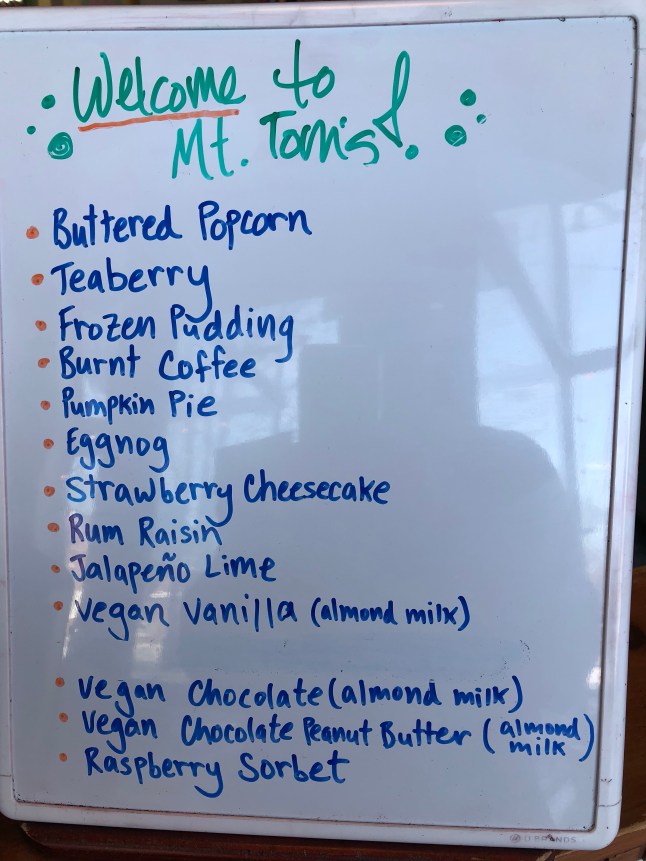 Welcome to
Mt. Tom's!
• Buttered Popcorn
• Teaberry
• Frozen Pudding
• Burnt Coffee
• Pumpkin Pie
• Eggnog
• Strawberry Cheesecake
• Rum Raisin
• Jalapeño Lime
• Vegan Vanilla (almond milk)
• Vegan Chocolate (almond milk)
• Vegan Chocolate Peanut Butter (almond
milk)
• Raspberry Sorbet